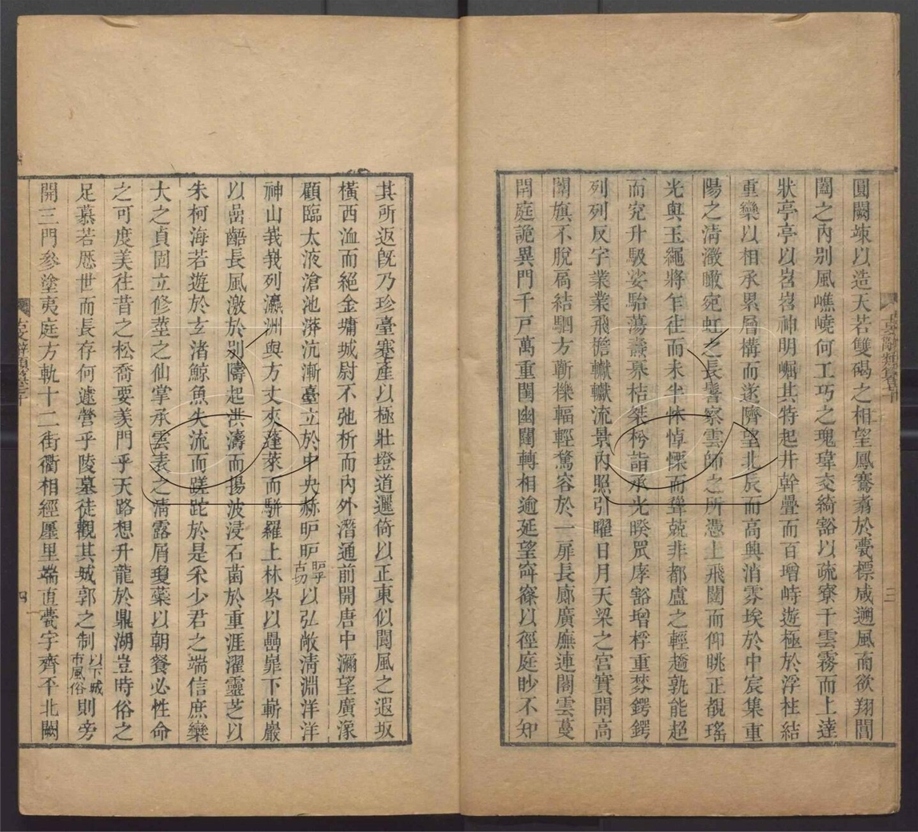 圓闕竦以造天若雙碣之相望鳳騫翥於甍標咸遡風而欲翔閶
闔之內别風嶕嶢何工巧之瑰瑋交綺豁以疏寮干雲霧而上達
狀亭亭以岧岧神明崛其特起井幹疊而百增峙遊極於浮柱結
重欒以相承累層構而遂隮望北辰而高興消雰埃於中宸集重
陽之清澂瞰宛虹之長鬐察雲師之所憑上飛闥而仰眺正覩瑤
光與玉繩將乍往而未半怵悼慄而聳兢非都盧之輕趫孰能超
而究升馺娑駘蕩燾奡桔桀枍詣承光睽罛庨豁增桴重棼鍔鍔
列列反宇業業飛檐轍轍流景內照引曜日月天梁之宮實開高
闈旗不脫扃結駟方蘄櫟輻輕騖容於一扉長廊廣廡連閣雲蔓
閈庭詭異門千戸萬重閨幽闥轉相逾延望䆗窱以徑庭眇不知
其所返旣乃珍臺蹇產以極壯墱道邐倚以正東似閬風之遐坂
橫西洫而絕金墉城尉不弛柝而內外潛通前開唐中瀰望廣潒
顧臨太液滄池漭沆漸臺立於中央赫昈昈昈乎古切以弘敞清淵洋洋
神山峩峩列瀛洲與方丈夾蓬萊而駢羅上林岑以壘嶵下嶄巖
以嵒齬長風激於别隯起洪濤而揚波浸石菌於重涯濯靈芝以
朱柯海若遊於玄渚鯨魚失流而蹉跎於是釆少君之端信庶欒
大之貞固立修莖之仙掌承雲表之淸露屑瓊蘂以朝餐必性命
之可度美往昔之松喬要羨門乎天路想升龍於鼎湖豈時俗之
足慕若歷世而長存何遽營乎陵墓徒觀其城郭之制以下城市風俗則旁
開三門參塗夷庭方軌十二街衢相經廛里端直甍宇齊平北闕